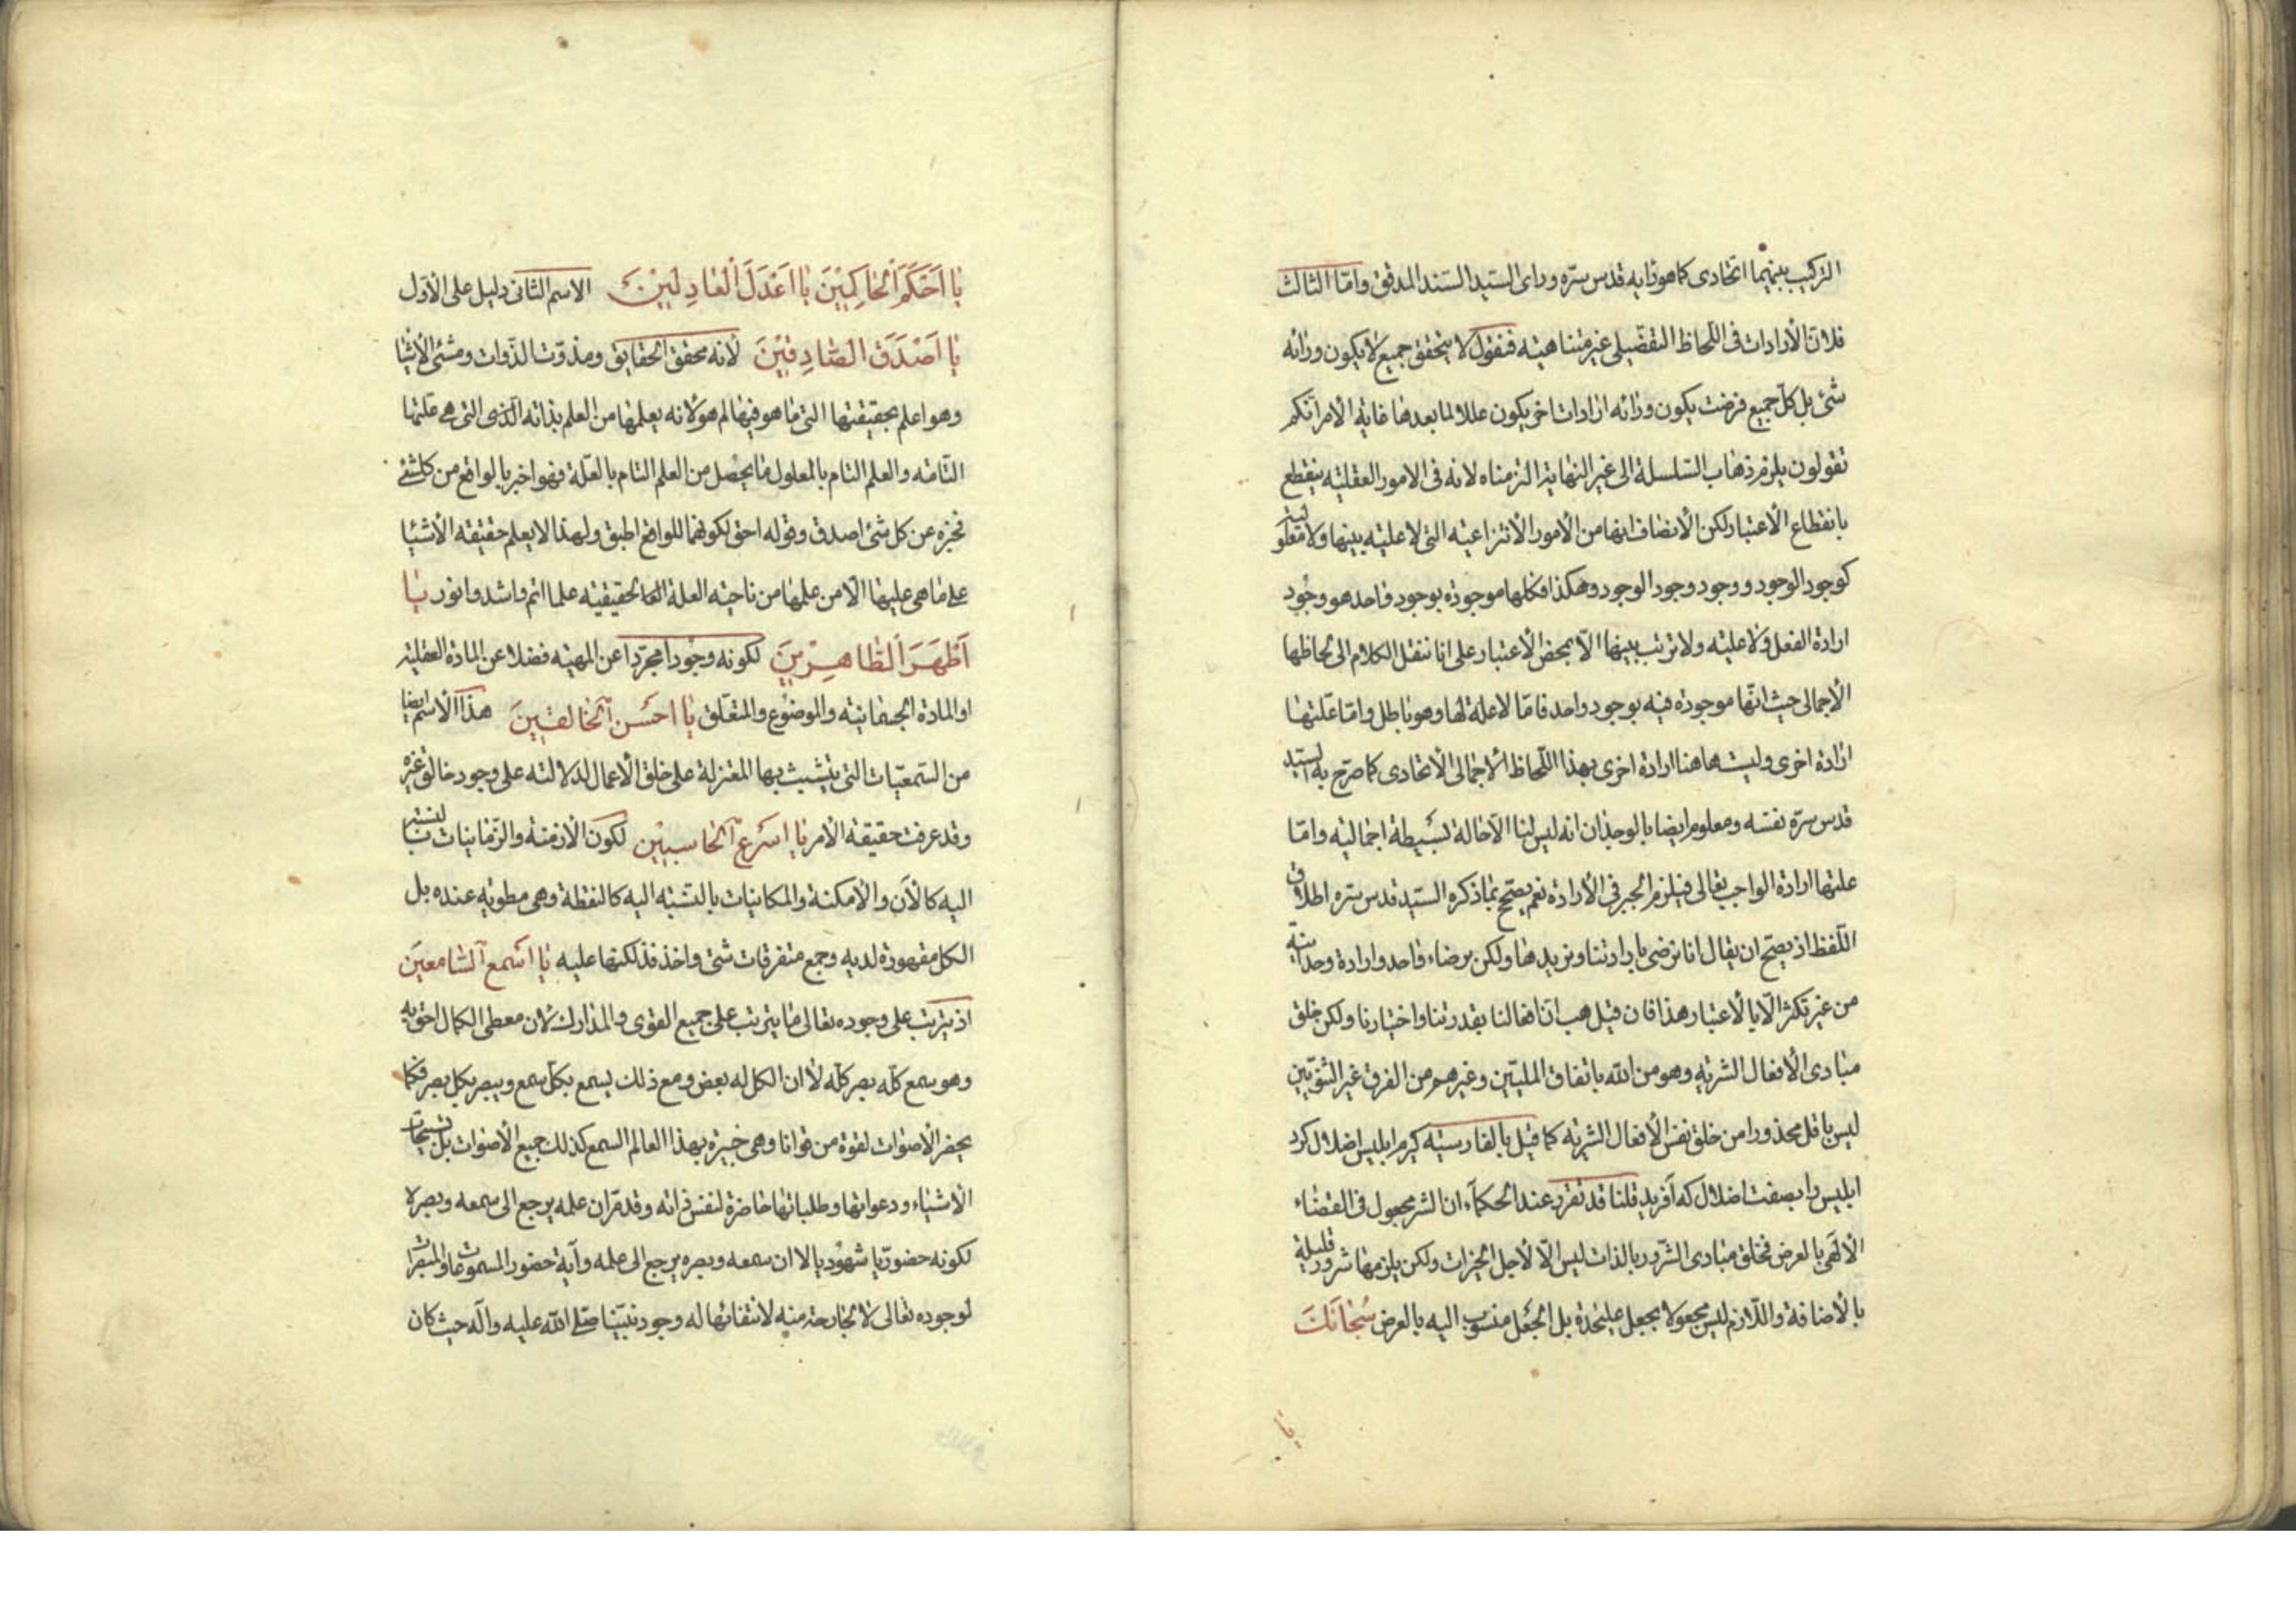 التركيب بينهما اتحادى كما هو رايه قدس سره وراى السيد السند المدقق واما الثالث
فلان الأرادات فى اللحاظ التفصيلى غير متناهية فنقول لا يتحقق جميع لا يكون ورائه
شئ بل كل جميع فرضت يكون ورائه ارادات اخر يكون عللا لما بعدها غاية الامر انكم
تقولون يلزم ذهاب السلسلة الى غير النهاية التزمناه لانه فى الامور العقلية ينقطع
بانقطاع الأعتبار لكن الأنصاف انها من الأمور الأنتزاعية التى لا علية بينها ولا معلولية
كوجود الوجود ووجود وجود الوجود وهكذا فكلها موجودة بوجود واحد هو وجود
ارادة الفعل ولا علية ولا ترتب بينها الا بمحض الأعتبار على انا ننقل الكلام الى لحاظها
الأجمالى حيث انها موجودة فيه بوجود واحد فاما لا علة لها وهو باطل واما علتها
ارادة اخرى وليست هاهنا ارادة اخرى بهذا اللحاظ الأجمالى الأتحادى كما صرح به السيد
قدس سره نفسه ومعلوم ايضا بالوجدان انه ليس لنا الا حالة بسيطة اجمالية واما
علتها ارادة الواجب تعالى فيلزم الجبر فى الأرادة نعم يصح بما ذكره السيد قدس سره اطلاق
اللفظ اذ يصح ان يقال انا نرضى بارادتنا ونريدها ولكن برضاء واحد وارادة وحدانية
من غير تكثر الا بالأعتبار هذا فان قيل هب ان افعالنا بقدرتنا واختيارنا ولكن خلق
مبادى الأفعال الشرية وهو من الله باتفاق المليين وغيرهم من الفرق غير الثنويين
ليس باقل محذورا من خلق نفس الأفعال الشرية كما قيل بالفارسية كيرم ابليس اضلال كرد
ابليس را بصفت اضلال كه آفريد قلنا قد تقرر عند الحكماء ان الشر مجعول فى القضاء
الألهى بالعرض فخلق مبادى الشرور بالذات ليس الا لأجل الخيرات ولكن يلزمها شرور قليلة
بالأضافة واللازم ليس مجعولا بجعل عليحدة بل الجعل منسوب اليه بالعرض سُبْحَانَكَ
يا
يَا اَحْكَمَ الْحَاكِمِيْنَ يَا اَعْدَلَ الْعَادِلِيْنَ الاسم الثانى دليل على الأول
يَا اَصْدَقَ الصَّادِقِيْنَ لانه محقق الحقايق ومذوّت الذوات ومشئ الأشيا
وهو اعلم بحقيقتها التى ما هو فيها لم هو لانه يعلمها من العلم بذاته التى هى علتها
التامة والعلم التام بالمعلول ما يحصل من العلم التام بالعلة فهو اخبر بالواقع من كلشئ
فخبره عن كل شئ اصدق وقوله احق لكونهما للواقع اطبق ولهذا لا يعلم حقيقة الأشيا
على ما هى عليها الا من علمها من ناحية العلة الحقيقية علما اتم واشد وانور يَا
اَطْهَرَ الطَّاهِرِيْنَ لكونه وجودا مجردا عن المهية فضلا عن المادة العقلية
او المادة الجسمانية والموضوع والمتعلق يَا احسَن اَلخالقينَ هذا الأسم ايضا
من السمعيات التى يتشبث بها المعتزلة على خلق الأعمال لدلالته على وجود خالق غيره
وقد عرفت حقيقة الأمر يا اسرَع الحاسبين لكون الأزمنة والزمانيات بالنسبة
اليه كالآن والأمكنة والمكانيات بالنسبة اليه كالنقطة وهى مطوية عنده بل
الكل مقهورة لديه وجمع متفرقات شتى واخذ فذلكتها عليه يا اسمع السامعين
اذ يترتب على وجوده تعالى ما يترتب على جميع القوى والمدارك لان معطى الكمال احق به
وهو سمع كله بصر كله لا ان الكل له بعض ومع ذلك يسمع بكل سمع ويبصر بكل بصر فكما
يحضر الأصوات لقوة من قوانا وهى خبيرة بهذا العالم السمع كذلك جميع الأصوات بل تسبيحات
الأشياء ودعواتها وطلباتها حاضرة لنفس ذاته وقد مر ان علمه يرجع الى سمعه وبصره
لكونه حضوريا شهوديا لا ان سمعه وبصره يرجع الى علمه وآية حضور المسموعات والمبصرات
لوجوده تعالى لا لجارحة منه لانتفائها له وجود نبينا صلى الله عليه وآله حيث كان